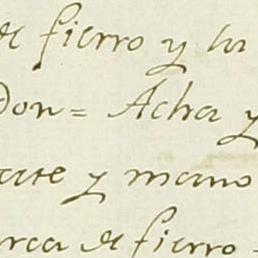 de fierro y la
Don = Acha y
arte y mano
arca de fierro